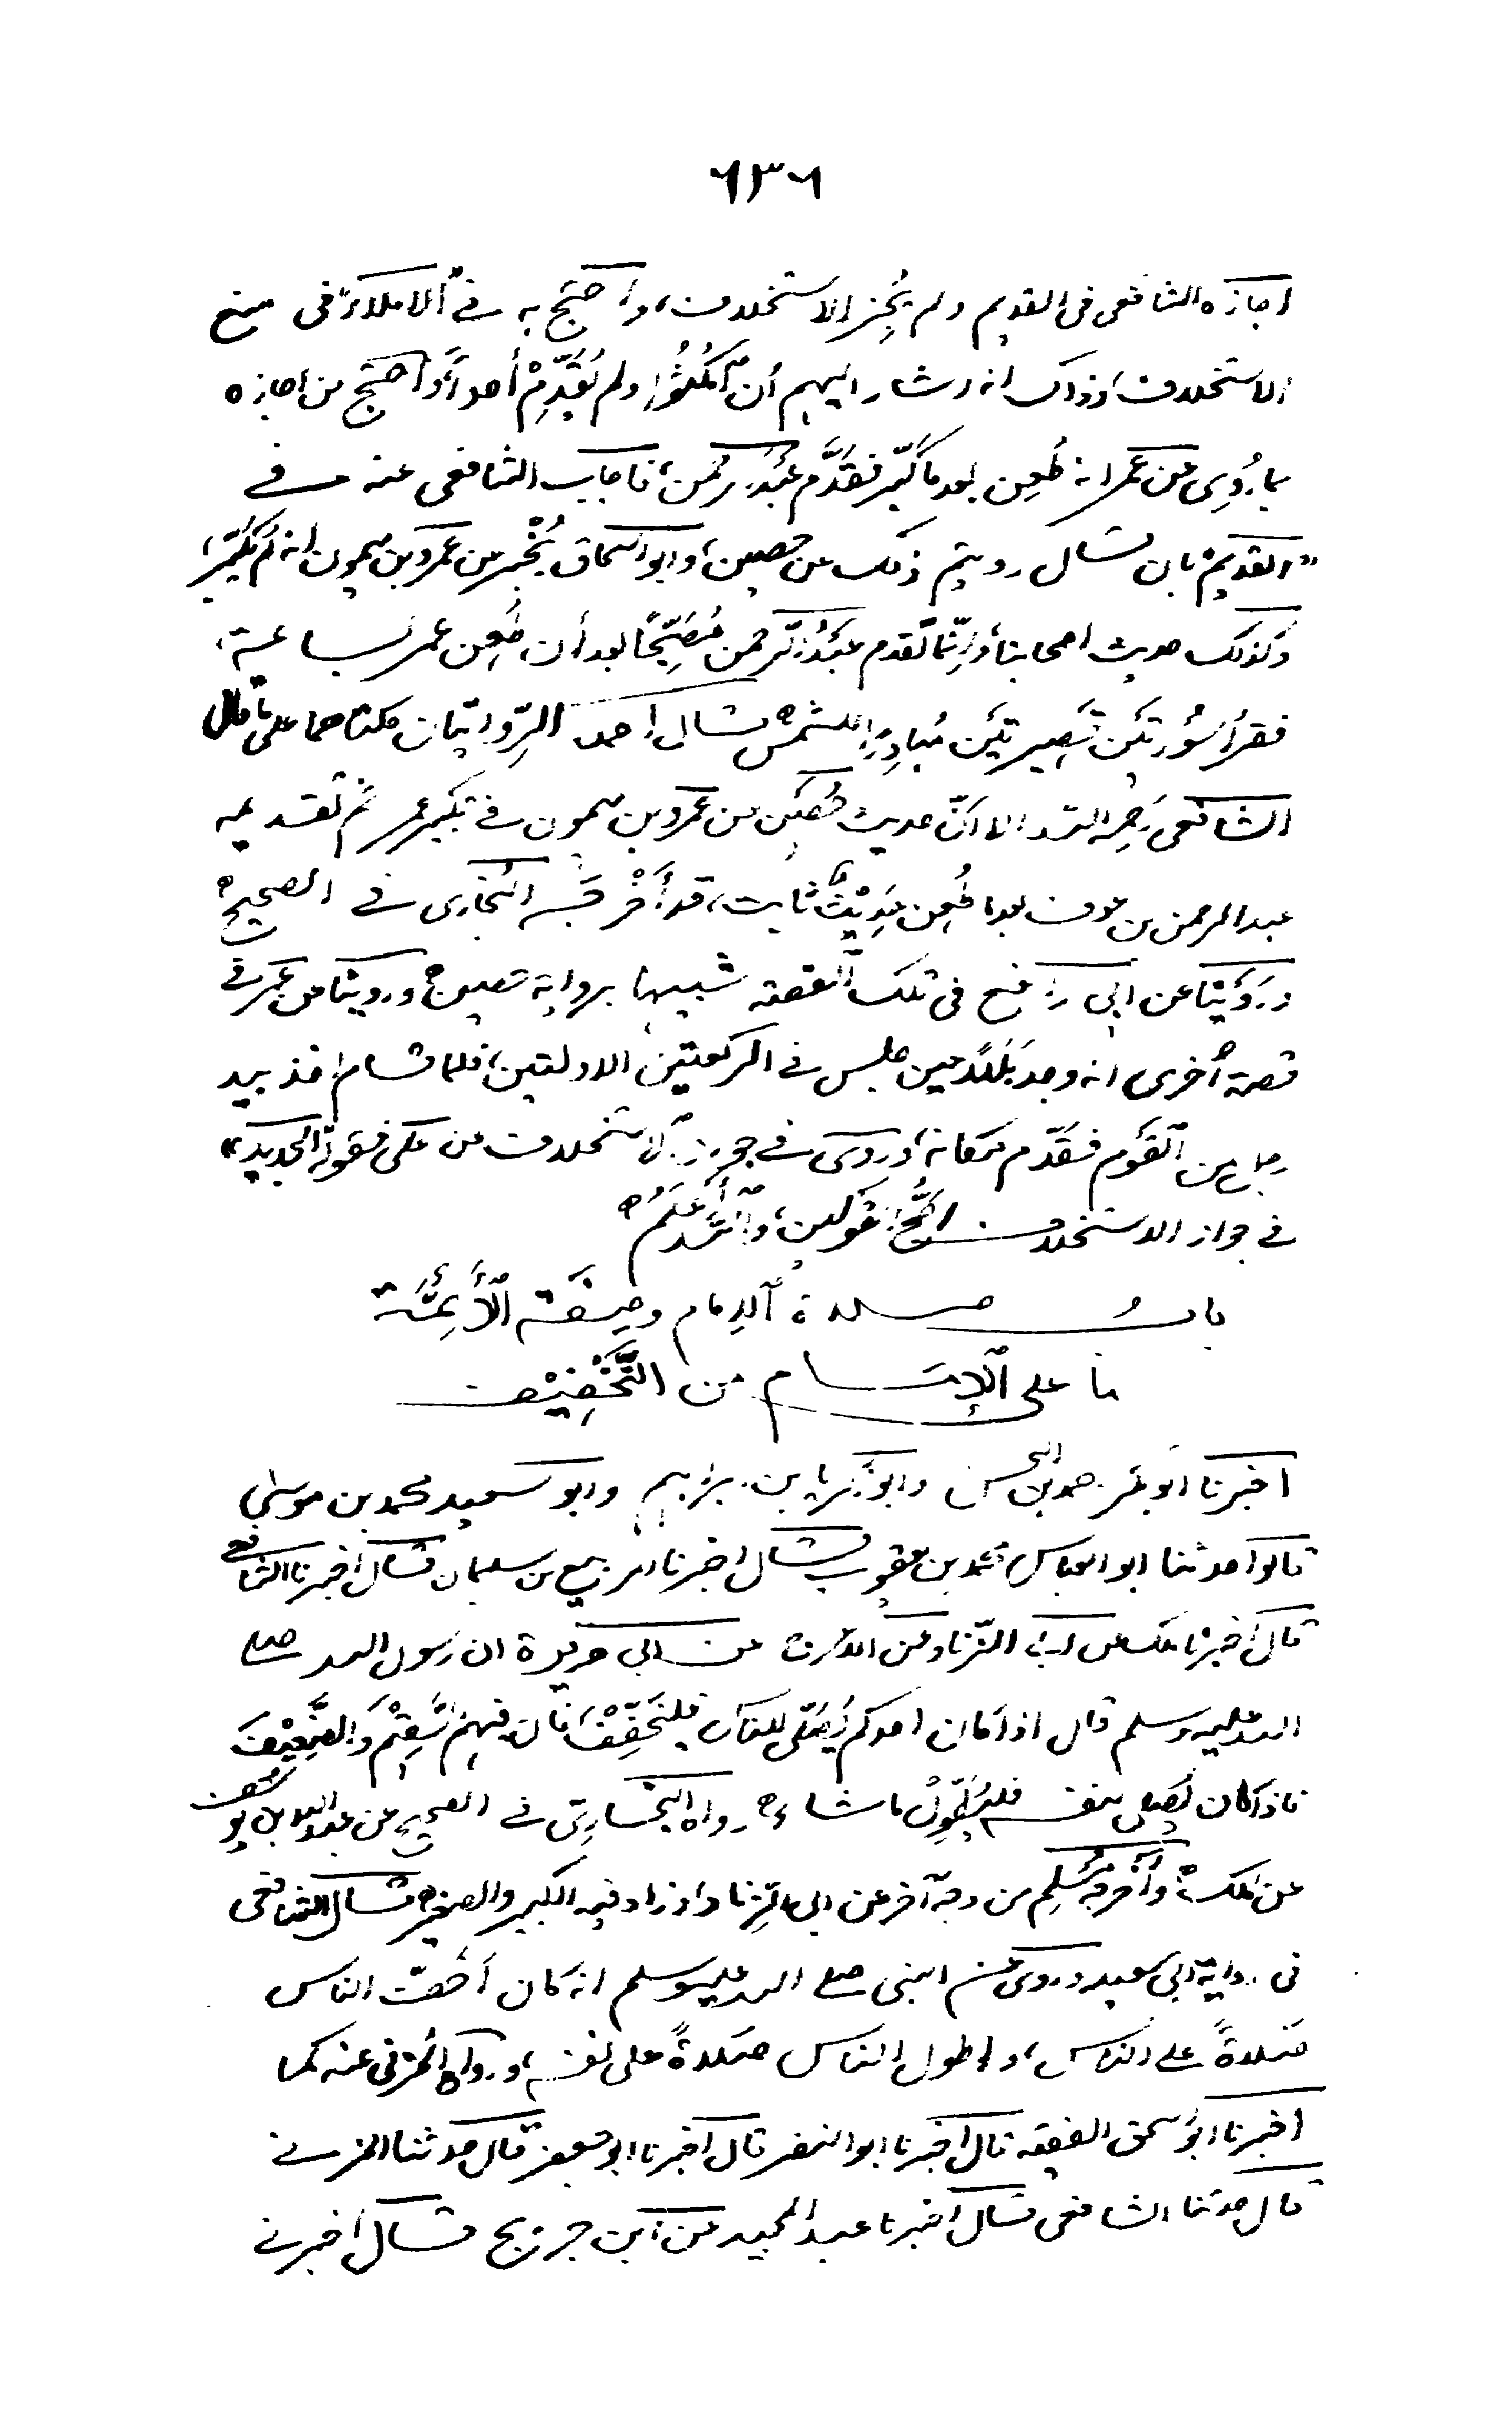 ٦٣٦
اجازه الشافعى فى القديم ولم يُجِز الاستخلاف، واحتج به فى الاملاء فى منع
الاستخلاف، وذاك انه اشار اليهم أن اُمْكُثُوا ولم يُقَدِّمْ أحداً، واحتج من اجازه
بما رُوِى عن عمر انه طُعِن بعد ما كَبَّر فقَدَّم عبدَ الرحمن، فاجاب الشافعى عنه فى
"القديم" بان قال رويتم ذلك عن حصين، وابو اسحاق يُخْبِر عن عمرو بن ميمون انه لم يُكَبِّر،
وكذلك حديث اصحابنا، وإنّما تقدم عبدُ الرحمن مُصَبِّحًا بعد أن طُعِن عمر بساعة،
فقرأ سُورتَين قَصِيرتَين مُبادِرًا للشمس قال احمد الرِّوايتان كلتاهما على ما قال
الشافعى رَحِمه الله الا انّ حديث حُصَين عن عمرو بن ميمون فى تكبير عمر ثم تقديمه
عبد الرحمن بن عوف بعد ما طُعِن حَدِيْثٌ ثابت، قد أَخْرَجَه البُخارى فى الصحيح
ورَوَيْنا عن ابى رافع فى تلك القصة شبيها برواية حصين وروينا عن عمر فى
قصة أُخرى انه وجد بَلَلاً حين جلس فى الركعتين الاوليين، فلما قام اخذ بيد
رجل من القَوم فقدَّم مكانه، وروى فى جواز الاستخلاف عن على فقوله "الجديد"
فى جواز الاستخلاف اَصَحُّ القولين، واللّٰه أَعْلَمُ
بابُ صلاة الإمام وصِفَة الْأَئِمَّة
ما على الإمام من التَّخْفِيْف
اخبرنا ابو بكر احمد بن الحسن وابو زكريا بن ابراهيم وابو سعيد محمد بن موسى
قالوا حدثنا ابو العباس محمد بن يعقوب قال اخبرنا الربيع بن سليمان قال اخبرنا الشافعى
قال اخبرنا مالك عن ابى الزّناد عن الاعرج عن ابى هريرة ان رسول الله صلى
الله عليه وسلم قال اذا كان احدكم يُصَلّى للناس فليُخَفِّفْ، فان فيهم السَّقِيْمَ والضَّعِيْفَ
فاذا كان يُصلى لنفسه فليُطَوِّلْ ما شاء رواه البخارىّ فى الصحيح عن عبد الله بن يوسف
عن مالك، وأَخْرجَه مُسْلِم من وجه آخر عن ابى الزِّناد وزاد فيه الكبير والصغير قال الشافعى
فى رواية ابى سعيد وروى عن النبى صلى الله عليه وسلم انه كان أَخفّ الناس
صَلاةً على الناس، واطول الناس صَلاةً على نفسه، ورواه المُزنى عنه كما
اخبرنا ابو اسحق الفقيه قال اخبرنا ابو النضر قال اخبرنا ابو جعفر قال حدثنا المزنى
قال حدثنا الشافعى قال اخبرنا عبد المجيد عن ابن جريج قال اخبرنى